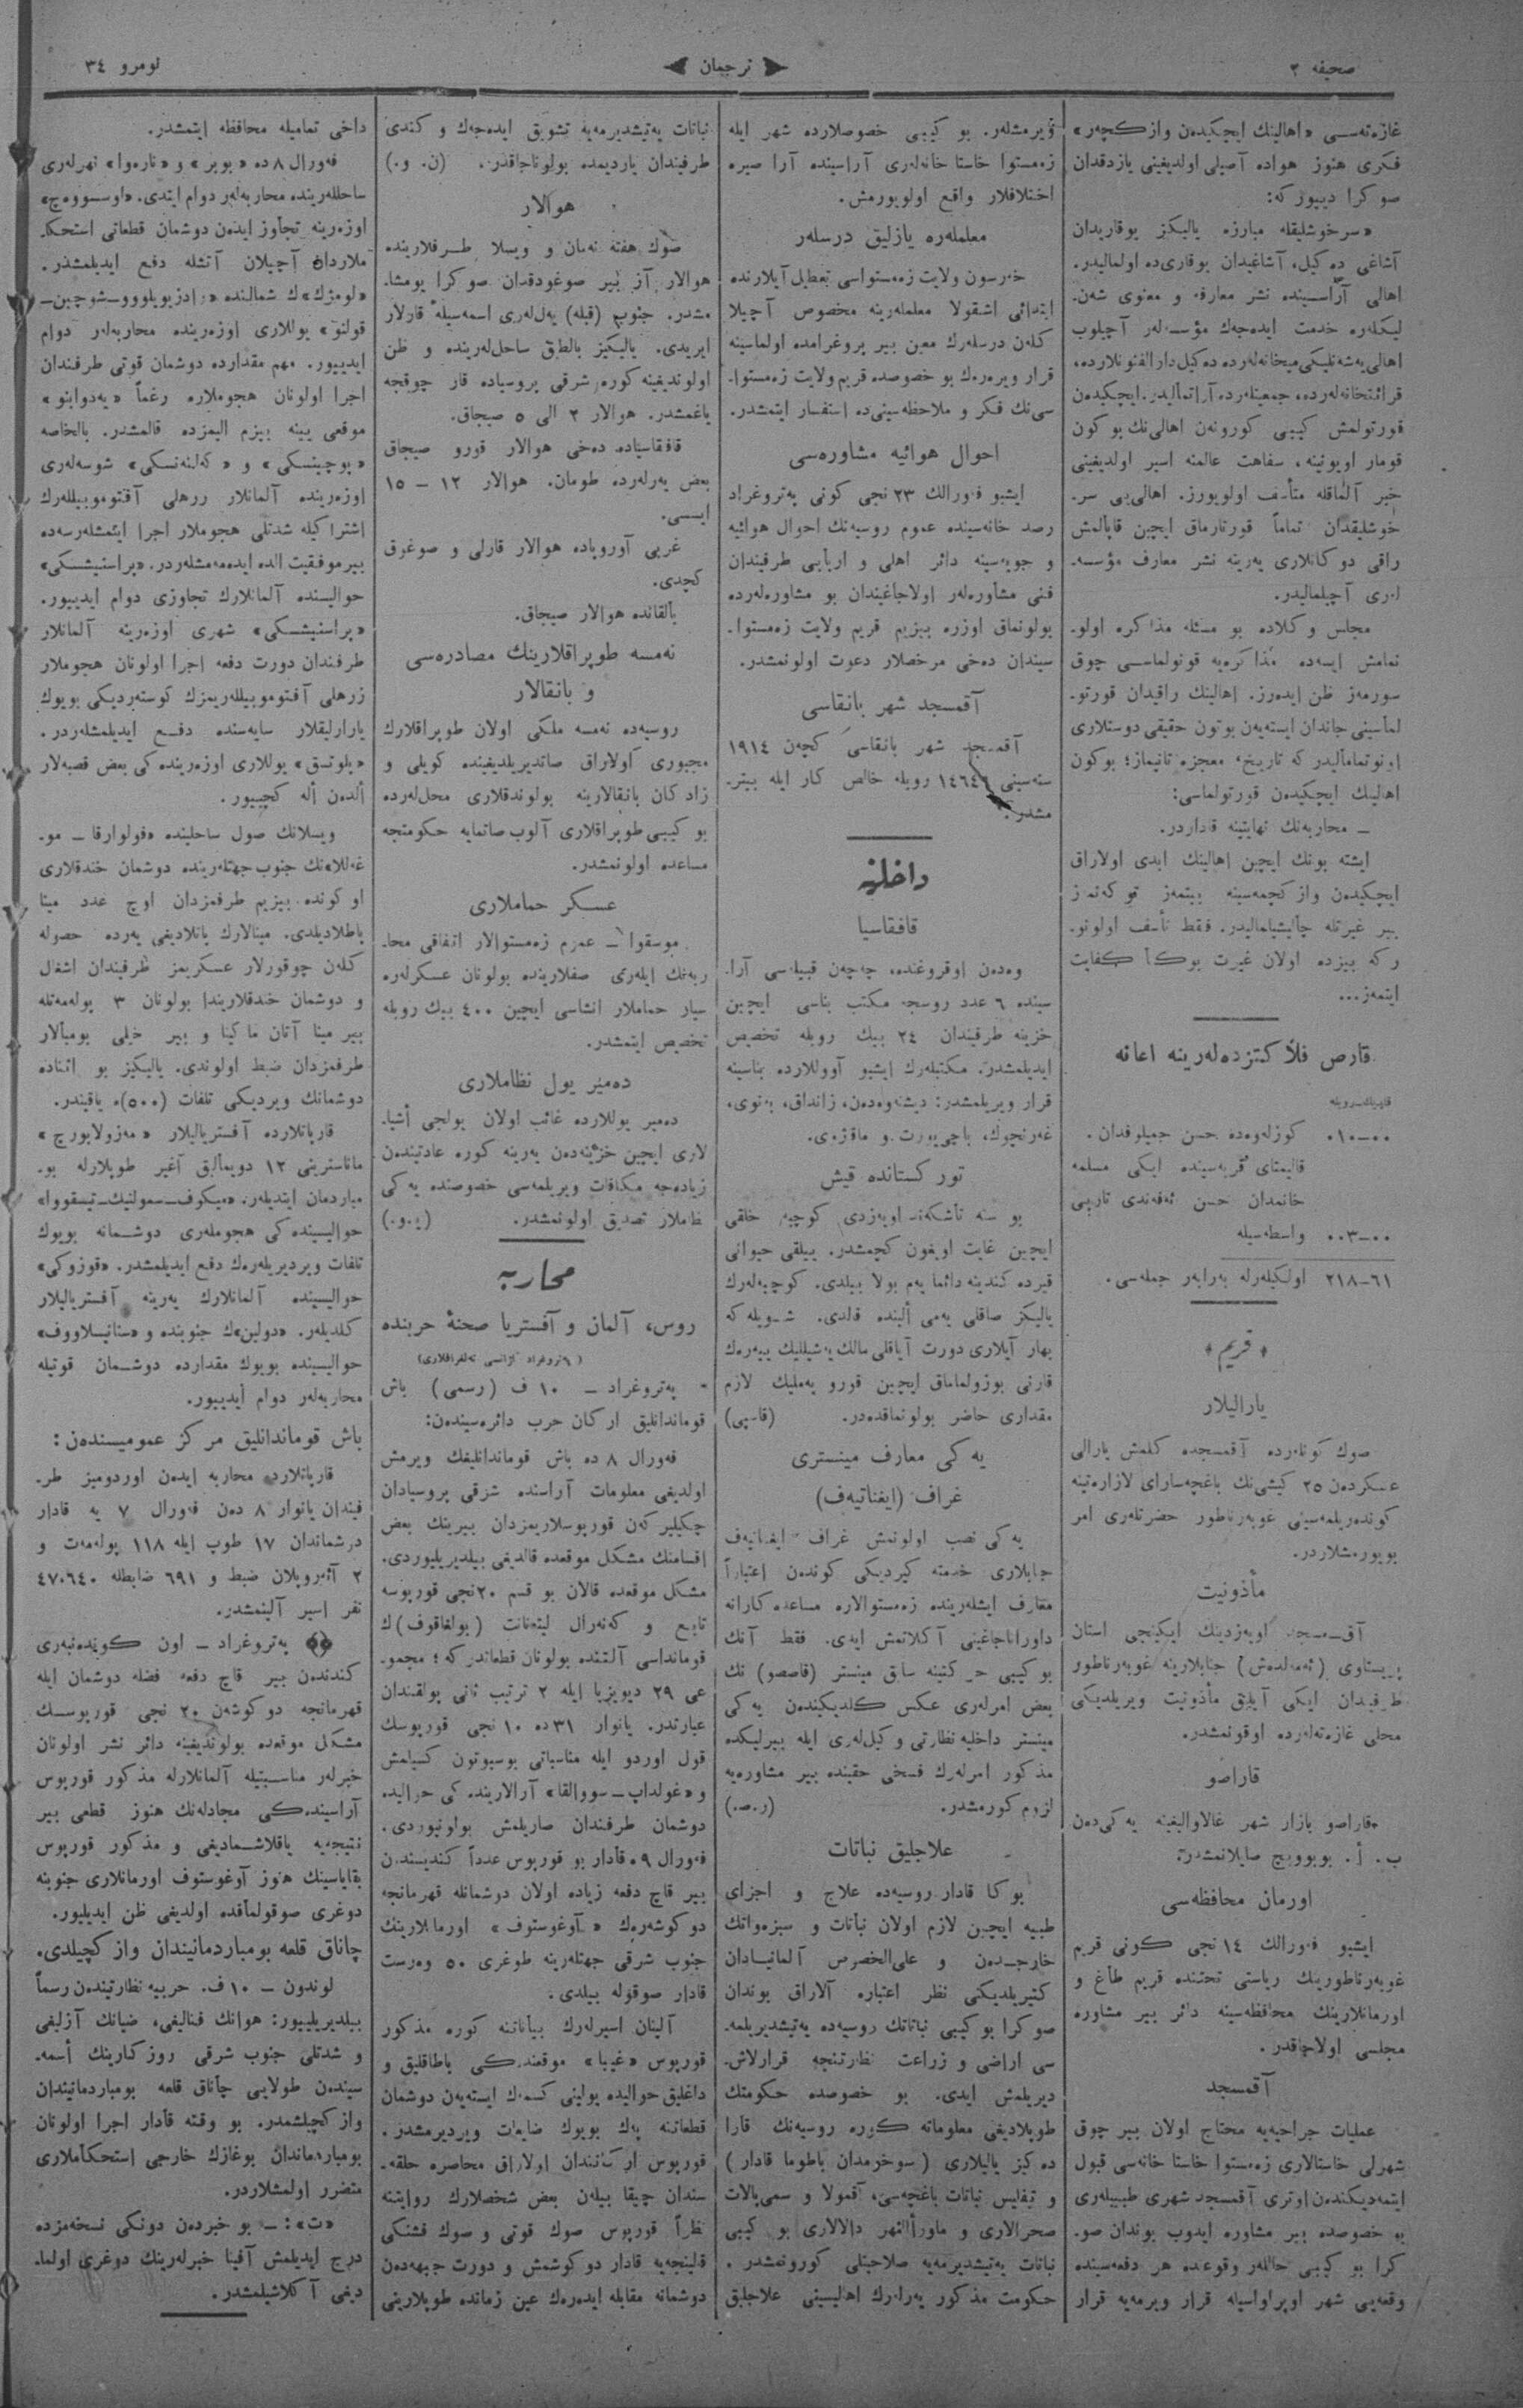 صحیفه ٢
ترجمان
نومرو ٣٤
غازه‌ته‌سی «اهالینك ایچكیدن وازكچه‌ر»
فكری هنوز هواده آصیلی اولدیغینی یازدقدان
صوكرا دییوركه:
«سرخوشلیقله مبارزه یالیكز یوقاریدان
آشاغی ده‌كیل، آشاغیدان یوقاری‌ده اولمالیدر.
اهالی آراسینده نشر معارف و معنوی شه‌ن‌ـ
لیكله‌ره خدمت ایده‌جه‌ك مؤسسه‌لر آچیلوب
اهالی‌یه‌شه‌نلیكی‌میخانه‌لەرده ده‌كیل‌دارالفنونلارده،
قرائتخانه‌لەرده، جمعیتلەرده آراتمالیدر. ایچكیدەن
قورتولمش كیبی كورونه‌ن اهالی‌نك بوكون
قومار اویونینه، سفاهت عالمنه اسیر اولدیغینی
خبر آلماقله متأسف اولویورز. اهالی‌یی سرـ
خوشلیقدان تماماً قورتارماق ایچین قاپالمش
راقی دوكانلاری یه‌رینه نشر معارف مؤسسه‌ـ
لەری آچیلمالیدر.
مجلس وكلاده بو مسئله مذاكره اولوـ
نمامش ایسه‌ده مذاكره‌یه قونولماسی چوق
سورمه‌ز ظن ایده‌رز. اهالینك راقیدان قورتوـ
لماسینی جاندان ایسته‌یه‌ن بوتون حقیقی دوستلاری
اونوتمامالیدر كه تاریخ، معجزه تانیماز؛ بوكون
اهالینك ایچكیدەن قورتولماسی:
ـ محاربه‌نك نهایتینه قاداردر.
ایشته بونك ایچین اهالینك ابدی اولاراق
ایچكیدەن وازكچمه‌سینه بیتمه‌ز توكه‌نمه‌ز
بیر غیرتله چالیشیلمالیدر. فقط تأسف اولونوـ
ركه بیزده اولان غیرت بوكا كفایت
ایتمه‌ز...
قارص فلاكتزده‌لەرینه اعانه
قاپیك ـ روبله
٠٠ـ٠١٠ كوزله‌وه‌ده حسن جمیلوفدان.
قالیمتای قریه‌سینده ایكی مسلمه
خانمدان حسن ئه‌فه‌ندی تارپی
٠٠ـ٠٠٣ واسطه‌سیله
٦١ـ٢١٨ اولكیلەرله به‌رابەر جمله‌سی.
﴿قریم﴾
یارالیلار
صوك كونلەرده آقمسجده كلمش یارالی
عسكردەن ٢٥ كیشی‌نك باغچه‌سارای لازاره‌تینه
كوندەریلمه‌سینی غوبه‌رناطور حضرتلەری امر
بویورمشلاردر.
مأذونیت
آقمسجد اویه‌زدینك ایكینجی استان
پریستاوی (ئه‌مه‌لدەش) جنابلارینه غوبه‌رناطور
طرفیندان ایكی آیلق مأذونیت ویریلدیكی
محلی غازه‌تەلەرده اوقونمشدر.
قاراصو
قاراصو بازار شهر غالاوالیغینه یه‌كی‌دەن
ب. آ. بوبوویچ صایلانمشدر.
اورمان محافظه‌سی
ایشبو فه‌ورالك ١٤ نجی كونی قریم
غوبه‌رناطورینك ریاستی تحتنده قریم طاغ و
اورمانلارینك محافظه‌سینه دائر بیر مشاوره
مجلسی اولاجاقدر.
آقمسجد
عملیات جراحیه‌یه محتاج اولان بیر چوق
شهرلی خاستالاری زه‌مستوا خاستا خانه‌سی قبول
ایتمه‌دیكندەن اوتری آقمسجد شهری طبیبلەری
بو خصوصده بیر مشاوره ایدوب بوندان صوـ
كرا بو كیبی حاللەر وقوعنده هر دفعه‌سینده
وقعه‌یی شهر اوپراواسیله قرار ویرمه‌یه قرار
ویرمشلەر. بو كیبی خصوصلارده شهر ایله
زه‌مستوا خاستا خانه‌لەری آراسینده آرا صیره
اختلافلار واقع اولویورمش.
معلملەره یازلیق درسلەر
خه‌رسون ولایت زه‌مستواسی تعطیل آیلارنده
ابتدائی اشقولا معلملەرینه مخصوص آچیلا
كلەن درسلەرك معین بیر پروغرامده اولماسینه
قرار ویرەرەك بو خصوصده قریم ولایت زه‌مستواـ
سی‌نك فكر و ملاحظه‌سینی‌ده استفسار ایتمشدر.
احوال هوائیه مشاوره‌سی
ایشبو فه‌ورالك ٢٣ نجی كونی په‌تروغراد
رصد خانه‌سینده عموم روسیه‌نك احوال هوائیه
و جویه‌سینه دائر اهلی و اربابی طرفیندان
فنی مشاوره‌لەر اولاجاغیندان بو مشاوره‌لەرده
بولونماق اوزره بیزیم قریم ولایت زه‌مستواـ
سیندان دەخی مرخصلار دعوت اولونمشدر.
آقمسجد شهر بانقاسی
آقمسجد شهر بانقاسی كچەن ١٩١٤
سنه‌سینی ١٤٦٤٦ روبله خالص كار ایله بیترـ
مشدر.
داخلیه
قافقاسیا
وه‌دەن اوقروغنده، چه‌چەن قبیله‌سی آراـ
سینده ٦ عدد روسجه مكتب بناسی ایچین
خزینه طرفیندان ٢٤ بیك روبله تخصیص
ایدیلمشدر. مكتبلەرك ایشبو آووللارده بناسینه
قرار ویریلمشدر: دیشنه‌وه‌دەن، زانداق، به‌نوی،
غه‌رنچوك، باچی‌یورت و ماقزه‌وی.
توركستانده قیش
بو سنه تاشكه‌ند اویه‌زدی كوچبه خلقی
ایچین غایت اویغون كچمشدر. ییلقی حیوانی
قیرده كندینه دائما یه‌م بولا بیلدی. كوچبه‌لەرك
یالیكز صاقلی یه‌می ألینده قالدی. شویله كه
بهار آیلاری دورت آیاقلی مالك یه‌شیللیك ییه‌رەك
قارنی بوزولماماق ایچین قورو یه‌ملیك لازم
مقداری حاضر بولونماقده‌در. (قاسپی)
یه‌كی معارف مینستری
غراف (ایغناتیه‌ف)
یه‌كی نصب اولونمش غراف ایغناتیه‌ف
جنابلاری خدمته كیردیكی كوندەن اعتباراً
معارف ایشلەرینده زه‌مستوالاره مساعده كارانه
داوراناجاغینی آكلاتمش ایدی. فقط آنك
بو كیبی حركتینه سابق مینستر (قاصصو) نك
بعض امرلەری عكس كلدیكیندەن یه‌كی
مینستر داخلیه نظارتی وكیللەری ایله بیرلیكده
مذكور امرلەرك فسخی حقینده بیر مشاوره‌یه
لزوم كورمشدر. (ر.ص.)
علاجلیق نباتات
بوكا قادار روسیه‌ده علاج و اجزای
طبیه ایچین لازم اولان نباتات و سبزه‌واتك
خارجدەن و علی‌الخصوص آلمانیادان
كتیریلدیكی نظر اعتباره آلاراق بوندان
صوكرا بو كیبی نباتاتك روسیه‌ده یه‌تیشدیریلمه‌ـ
سی اراضی و زراعت نظارتنجه قرارلاشـ
دیریلمش ایدی. بو خصوصده حكومتك
طوپلادیغی معلوماته كوره روسیه‌نك قارا
ده‌كیز یالیلاری (سوخومدان باطوما قادار)
و تیفلیس نباتات باغچه‌سی، آقمولا و سمی‌پالات
صحرالاری و ماورأالنهر دالالاری بو كیبی
نباتات یه‌تیشدیرمه‌یه صلاحیتلی كورونمشدر.
حكومت مذكور یه‌رلەرك اهالیسینی علاجلیق
نباتات یه‌تیشدیرمه‌یه تشویق ایده‌جه‌ك و كندی
طرفیندان یاردیمده بولوناجاقدر. (ن. و.)
هوالار
صوك هفته نه‌مان و ویسلا طرفلارینده
هوالار آز بیر صوغودقدان صوكرا یومشاـ
مشدر. جنوب (قبله) یه‌للەری اسمه‌سیله قارلار
ایریدی. یالیكز بالطق ساحللەرینده و ظن
اولوندیغینه كوره شرقی پروسیاده قار چوقجه
یاغمشدر. هوالار ٢ الی ٥ صیجاق.
قافقاسیاده دەخی هوالار قورو صیجاق
بعض یه‌رلەرده طومان. هوالار ١٢ ـ ١٥
ایسسی.
غربی آوروپاده هوالار قارلی و صوغوق
كچدی.
بالقانده هوالار صیجاق.
نه‌مسه طوپراقلارینك مصادره‌سی
و بانقالار
روسیه‌ده نه‌مسه ملكی اولان طوپراقلارك
مجبوری اولاراق صاتدیریلدیغینده كویلی و
زادكان بانقالارینه بولوندقلاری محللەرده
بو كیبی طوپراقلاری آلوب صاتمایه حكومتجه
مساعده اولونمشدر.
عسكر حماملاری
موسقوا ـ عموم زه‌مستوالار اتفاقی محاـ
ربه‌نك ایلەری صفلارینده بولونان عسكرلەره
سیار حماملار انشاسی ایچین ٤٠٠ بیك روبله
تخصیص ایتمشدر.
ده‌میر یول نظاملاری
ده‌میر یوللارده غائب اولان یولجی أشیاـ
لاری ایچین خزینه‌دەن یه‌رینه كوره عادتیندەن
زیاده‌جه مكافات ویریلمه‌سی خصوصنده یه‌كی
نظاملار تصدیق اولونمشدر. (ی.و.)
محاربه
روس، آلمان و آفستریا صحنۀ حربنده
(په‌تروغراد آژانسی ته‌لغرافلاری)
په‌تروغراد ـ ١٠ ف (رسمی) باش
قوماندانلیق اركان حرب دائره‌سیندەن:
فه‌ورال ٨ ده باش قوماندانلیغك ویرمش
اولدیغی معلومات آراسنده شرقی پروسیادان
چكیلیركەن قورپوسلاریمزدان بیرینك بعض
اقسامنك مشكل موقعده قالدیغی بیلدیریلیوردی.
مشكل موقعده قالان بو قسم ٢٠نجی قورپوسه
تابع و كه‌نه‌رال لیته‌نانت (بولغاقوف)ك
قومانداسی آلتنده بولونان قطعاتدركه؛ مجموـ
عی ٢٩ دیویزیا ایله ٢ ترتیب ثانی پولقندان
عبارتدر. یانوار ٣١ده ١٠ نجی قورپوسك
قول اوردو ایله مناسباتی بوسبوتون كسیلمش
و «غولداپ ـ سووالقا» آرالارنده‌كی حوالیده
دوشمان طرفندان صاریلمش بولونیوردی.
فه‌ورال ٩ قادار بو قورپوس عدداً كندیسندن
بیر قاچ دفعه زیاده اولان دوشمانله قهرمانجه
دوكوشه‌رەك «آوغوستوف» اورمانلارینك
جنوب شرقی جهتلەرینه طوغری ٥٠ وه‌رست
قادار صوقوله بیلدی.
آلینان اسیرلەرك بیاناتنه كوره مذكور
قورپوس «غیبا» موقعنده‌كی باطاقلیق و
داغلیق حوالیده یولینی كسمه‌ك ایسته‌یەن دوشمان
قطعاتنه پەك بویوك ضایعات ویردیرمشدر.
قورپوس اركانندان اولاراق محاصره حلقه‌ـ
سندان چیقا بیلەن بعض شخصلارك روایتنه
نظراً قورپوس صوك قوتی و صوك فشنكی
قالینجه‌یه قادار دوكوشمش و دورت جبهه‌دەن
دوشمانه مقابله ایده‌رەك عین زمانده طوپلارینی
داخی تمامیله محافظه ایتمشدر.
فه‌ورال ٨ ده «بوبر» و «ناره‌وا» نهرلەری
ساحللەرینده محاربه‌لەر دوام ایتدی. «اوسسووه‌چ»
اوزەرینه تجاوز ایدەن دوشمان قطعاتی استحكاـ
ملاردان آچیلان آتشله دفع ایدیلمشدر.
«لومژك»ك شمالنده «رادزیویلووو ـ شوچین ـ
قولنو» یوللاری اوزەرینده محاربه‌لەر دوام
ایدییور. مهم مقدارده دوشمان قوتی طرفندان
اجرا اولونان هجوملاره رغماً «یه‌دوابنو»
موقعی یینه بیزم المزده قالمشدر. بالخاصه
«یوچینسكی» و «كه‌لنه‌نسكی» شوسه‌لەری
اوزەرینده آلمانلار زرهلی آفتوموبیللەرك
اشتراكیله شدتلی هجوملار اجرا ایتمشلەرسه‌ده
بیر موفقیت الده ایده‌مه‌مشلەردر. «پراسنیشسكی»
حوالیسنده آلمانلارك تجاوزی دوام ایدییور.
«پراسنیشسكی» شهری اوزەرینه آلمانلار
طرفندان دورت دفعه اجرا اولونان هجوملار
زرهلی آفتوموبیللەریمزك كوستەردیكی بویوك
یارارلیقلار سایه‌سنده دفع ایدیلمشلەردر.
«پلوتسق» یوللاری اوزەرینده‌كی بعض قصبه‌لار
ألدەن أله كچییور.
ویسلانك صول ساحلینده «فولوارقا ـ موـ
غه‌للا»نك جنوب جهتلەرینده دوشمان خندقلاری
اوكونده بیزیم طرفمزدان اوچ عدد مینا
پاطلادیلدی. مینالارك پاتلادیغی یه‌رده حصوله
كلەن چوقورلار عسكریمز طرفیندان اشغال
و دوشمان خندقلاریندا بولونان ٣ پوله‌مه‌تله
بیر مینا آتان ماكینا و بیر خیلی بومبالار
طرفمزدان ضبط اولوندی. یالیكز بو اثناده
دوشمانك ویردیكی تلفات (٥٠٠)ه یاقیندر.
قارپاتلارده آفستریالیلار «مه‌زولابورچ»
ماناسترینی ١٢ دویمالق آغیر طوپلارله بوـ
مباردمان ایتدیلەر. «میكوف ـ سمولنیك ـ تیسقووا»
حوالیسینده‌كی هجوملەری دوشمانه بویوك
تلفات ویردیریلەرەك دفع ایدیلمشدر. «قوزوكی»
حوالیسینده آلمانلارك یه‌رینه آفستریالیلار
كلدیلەر. «دولین»ك جنوبنده و «ستانیسلاووف»
حوالیسینده بویوك مقدارده دوشمان قوتیله
محاربه‌لەر دوام ایدییور.
باش قوماندانلیق مركز عمومیسندەن:
قارپاتلارده محاربه ایدەن اوردومیز طرـ
فیندان یانوار ٨ دەن فه‌ورال ٧ یه قادار
دوشماندان ١٧ طوپ ایله ١١٨ پوله‌مه‌ت و
٢ آئه‌روپلان ضبط و ٦٩١ ضابطله ٤٧٠٦٤٠
نفر اسیر آلینمشدر.
﴿﴾ په‌تروغراد ـ اون كونده‌نبەری
كندندەن بیر قاچ دفعه فضله دوشمان ایله
قهرمانجه دوكوشەن ٢٠ نجی قورپوسك
مشكل موقعده بولوندیغینه دائر نشر اولونان
خبرلەر مناسبتیله آلمانلارله مذكور قورپوس
آراسینده‌كی مجادله‌نك هنوز قطعی بیر
نتیجه‌یه یاقلاشمادیغی و مذكور قورپوس
بقایاسینك هنوز آوغوستوف اورمانلاری جنوبنه
دوغری صوقولماقده اولدیغی ظن ایدیلیور.
چاناق قلعه بومباردمانیندان وازكچیلدی.
لوندون ـ ١٠ ف. حربیه نظارتیندەن رسماً
بیلدیریلییور: هوانك فنالیغی، ضیانك آزلیغی
و شدتلی جنوب شرقی روزكارینك أسمه‌ـ
سیندەن طولایی چاناق قلعه بومباردمانیندان
وازكچیلشمدر. بو وقته قادار اجرا اولونان
بومباردماندان بوغازك خارجی استحكاملاری
متضرر اولمشلاردر.
«ت»: ـ بو خبردەن دونكی نسخه‌مزده
درج ایدیلمش آفینا خبرلەرینك دوغری اولماـ
دیغی آكلاشیلمشدر.